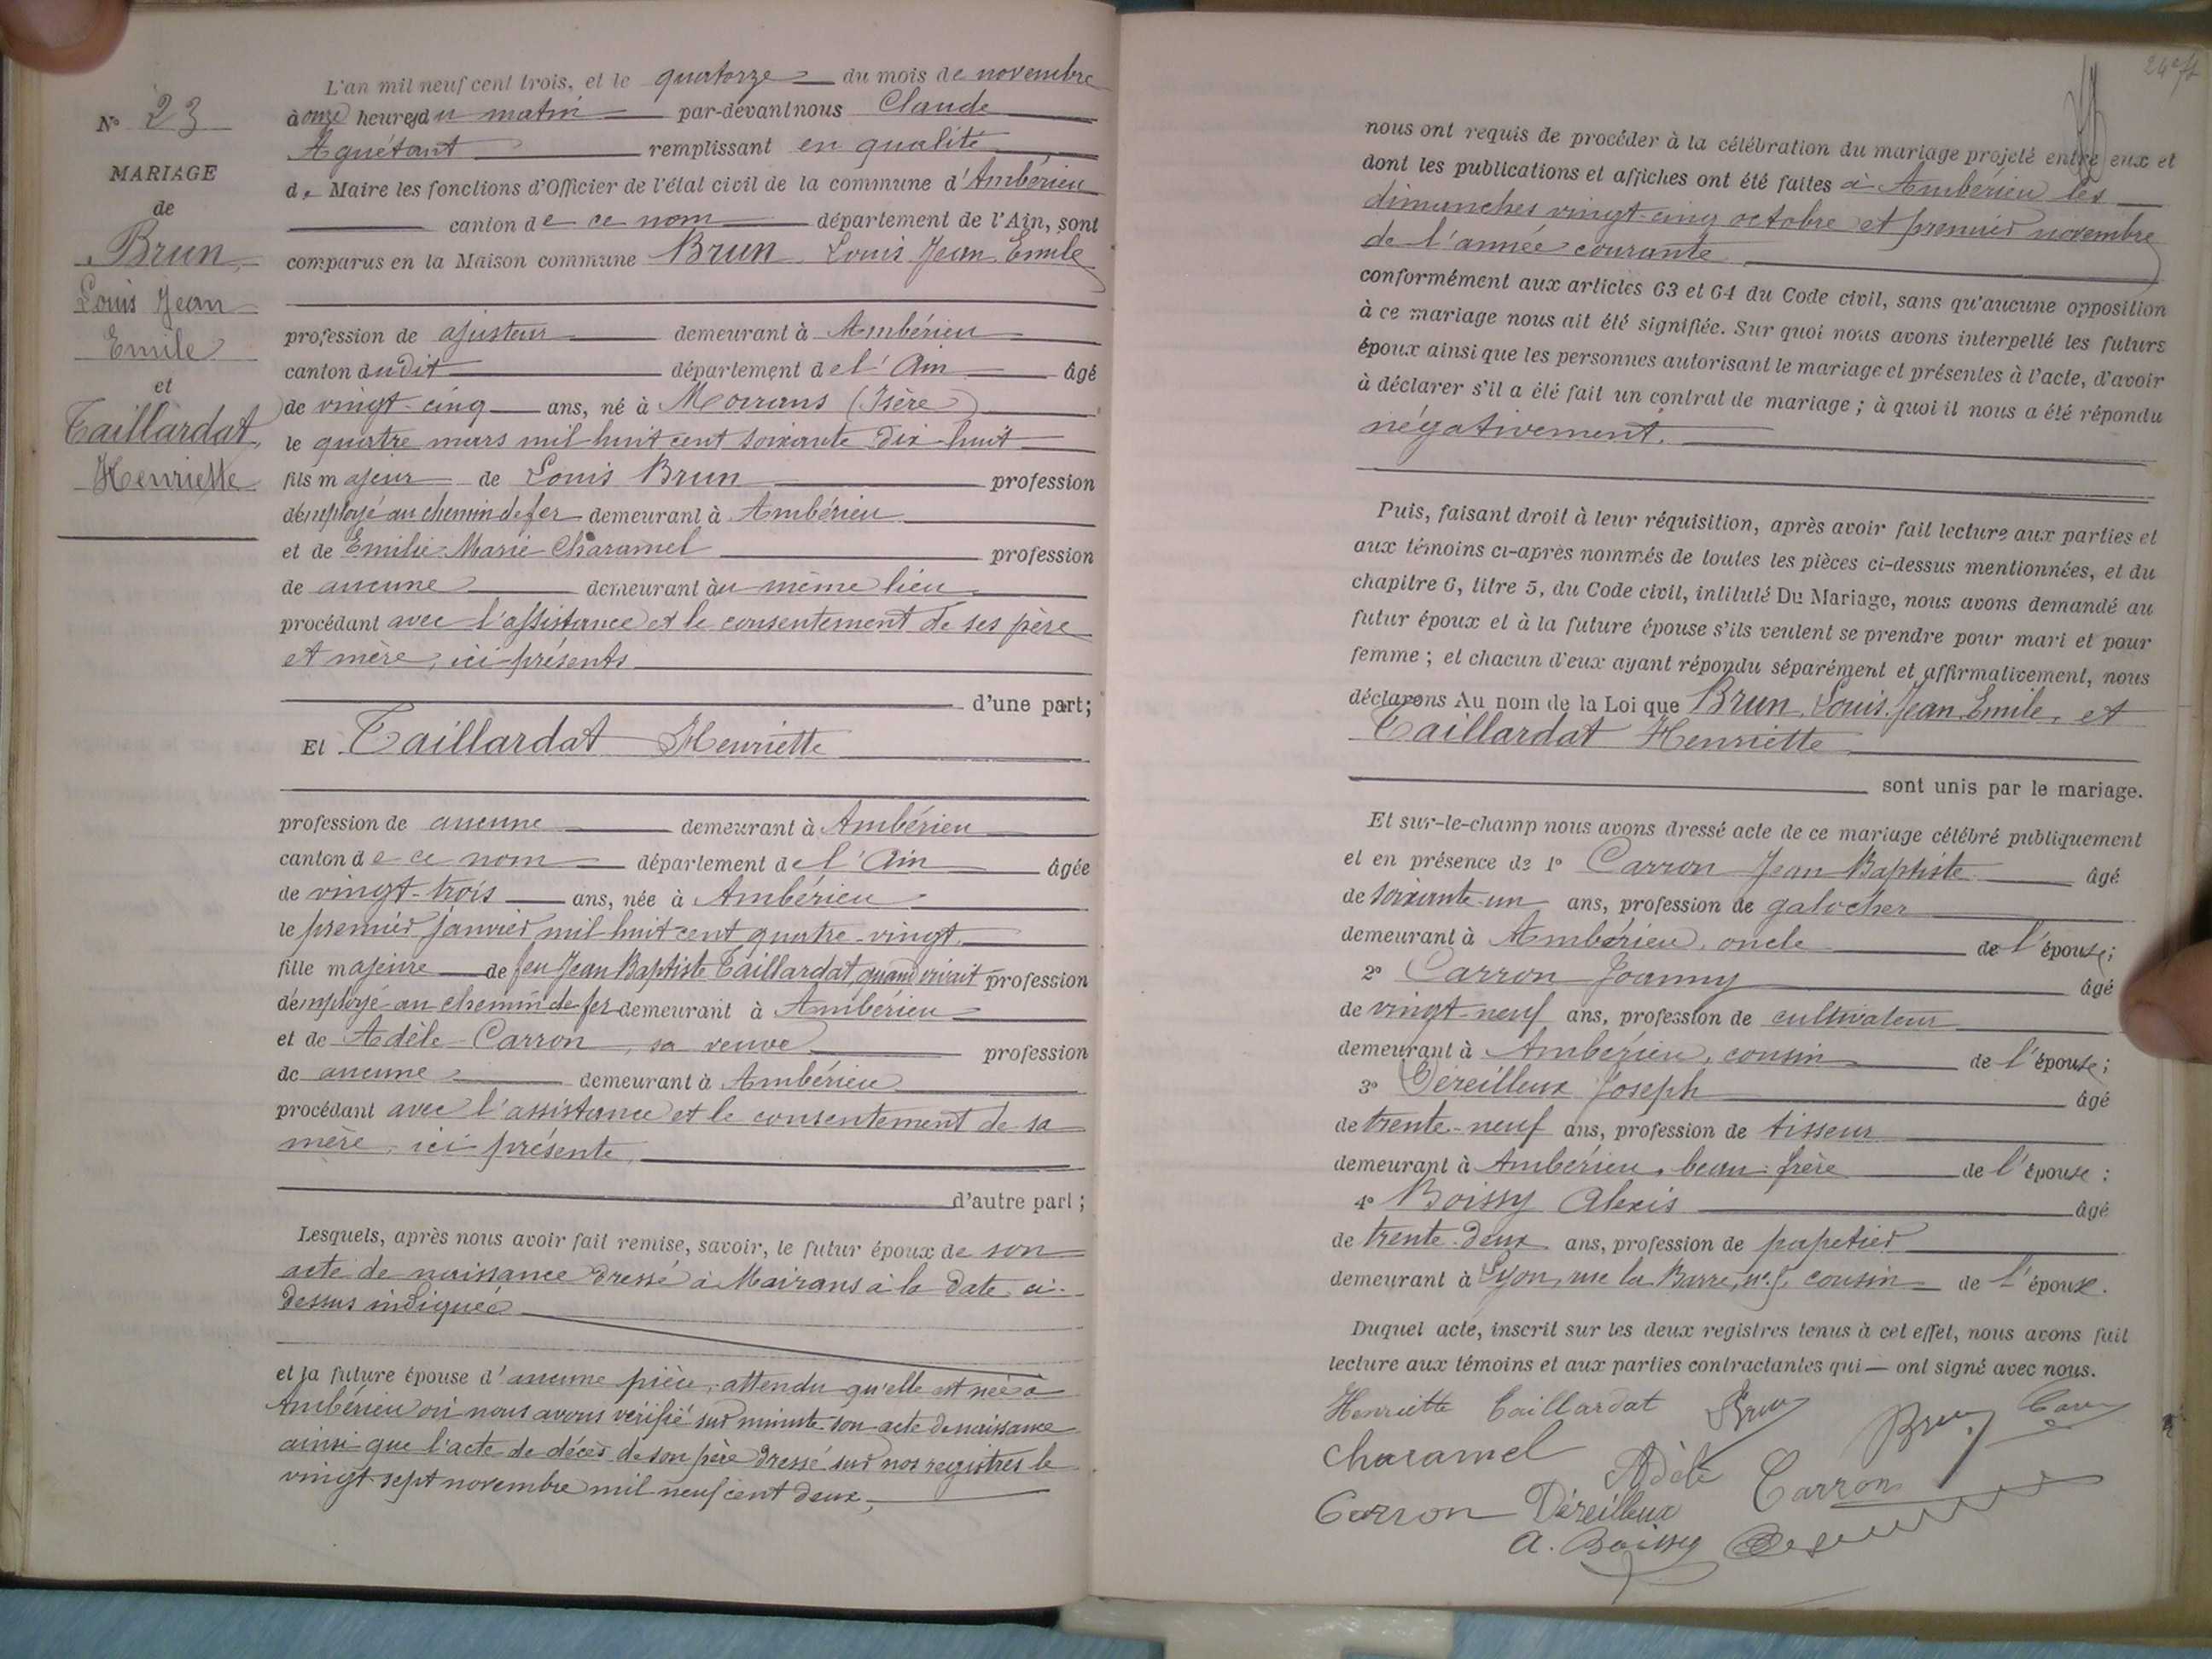 N° 23
MARIAGE
de
Brun
Louis Jean
Emile
et
Taillardat
Henriette
L'an mil neuf cent trois, et le quatorze du mois de novembre
à onze heures du matin par-devant nous Claude
Aguétant remplissant en qualité
de Maire les fonctions d'Officier de l'état civil de la commune d'Ambérieu
canton de ce nom département de l'Ain, sont
comparus en la Maison commune Brun Louis Jean Emile
profession de ajusteur demeurant à Ambérieu
canton dudit département de l'Ain âgé
de vingt-cinq ans, né à Moirans (Isère)
le quatre mars mil huit cent soixante dix-huit
fils majeur de Louis Brun profession
d'employé au chemin de fer demeurant à Ambérieu
et de Emilie Marie Charamel profession
de aucune demeurant au même lieu
procédant avec l'assistance et le consentement de ses père
et mère, ici présents
d'une part;
Et Taillardat Henriette
profession de aucune demeurant à Ambérieu
canton de ce nom département de l'Ain âgée
de vingt-trois ans, née à Ambérieu
le premier janvier mil huit cent quatre-vingt
fille majeure de feu Jean Baptiste Taillardat, quand vivait profession
d'employé au chemin de fer demeurant à Ambérieu
et de Adèle Carron, sa veuve profession
de aucune demeurant à Ambérieu
procédant avec l'assistance et le consentement de sa
mère, ici présente,
d'autre part;
Lesquels, après nous avoir fait remise, savoir, le futur époux de son
acte de naissance dressé à Moirans à la date ci-
dessus indiquée
et la future épouse d'aucune pièce, attendu qu'elle est née à
Ambérieu où nous avons vérifié sur minute son acte de naissance
ainsi que l'acte de décès de son père dressé sur nos registres le
vingt-sept novembre mil neuf cent deux,
nous ont requis de procéder à la célébration du mariage projeté entre eux et
dont les publications et affiches ont été faites à Ambérieu les
dimanches vingt-cinq octobre et premier novembre
de l'année courante
conformément aux articles 63 et 64 du Code civil, sans qu'aucune opposition
à ce mariage nous ait été signifiée. Sur quoi nous avons interpellé les futurs
époux ainsi que les personnes autorisant le mariage et présentes à l'acte, d'avoir
à déclarer s'il a été fait un contrat de mariage; à quoi il nous a été répondu
négativement.
Puis, faisant droit à leur réquisition, après avoir fait lecture aux parties et
aux témoins ci-après nommés de toutes les pièces ci-dessus mentionnées, et du
chapitre 6, titre 5, du Code civil, intitulé Du Mariage, nous avons demandé au
futur époux et à la future épouse s'ils veulent se prendre pour mari et pour
femme; et chacun d'eux ayant répondu séparément et affirmativement, nous
déclarons Au nom de la Loi que Brun, Louis Jean Emile, et
Taillardat Henriette
sont unis par le mariage.
Et sur-le-champ nous avons dressé acte de ce mariage célébré publiquement
et en présence de 1° Carron Jean Baptiste âgé
de soixante-un ans, profession de galocher
demeurant à Ambérieu, oncle de l'épouse;
2° Carron Joanny âgé
de vingt-neuf ans, profession de cultivateur
demeurant à Ambérieu, cousin de l'épouse;
3° Déreilleux Joseph âgé
de trente-neuf ans, profession de tisseur
demeurant à Ambérieu, beau-frère de l'épouse;
4° Boissy Alexis âgé
de trente-deux ans, profession de papetier
demeurant à Lyon, rue la Barre, cousin de l'épouse.
Duquel acte, inscrit sur les deux registres tenus à cet effet, nous avons fait
lecture aux témoins et aux parties contractantes qui — ont signé avec nous.
Henriette Taillardat Brun Brun
Charamel Adèle Carron
Carron Déreilleux
A. Boissy